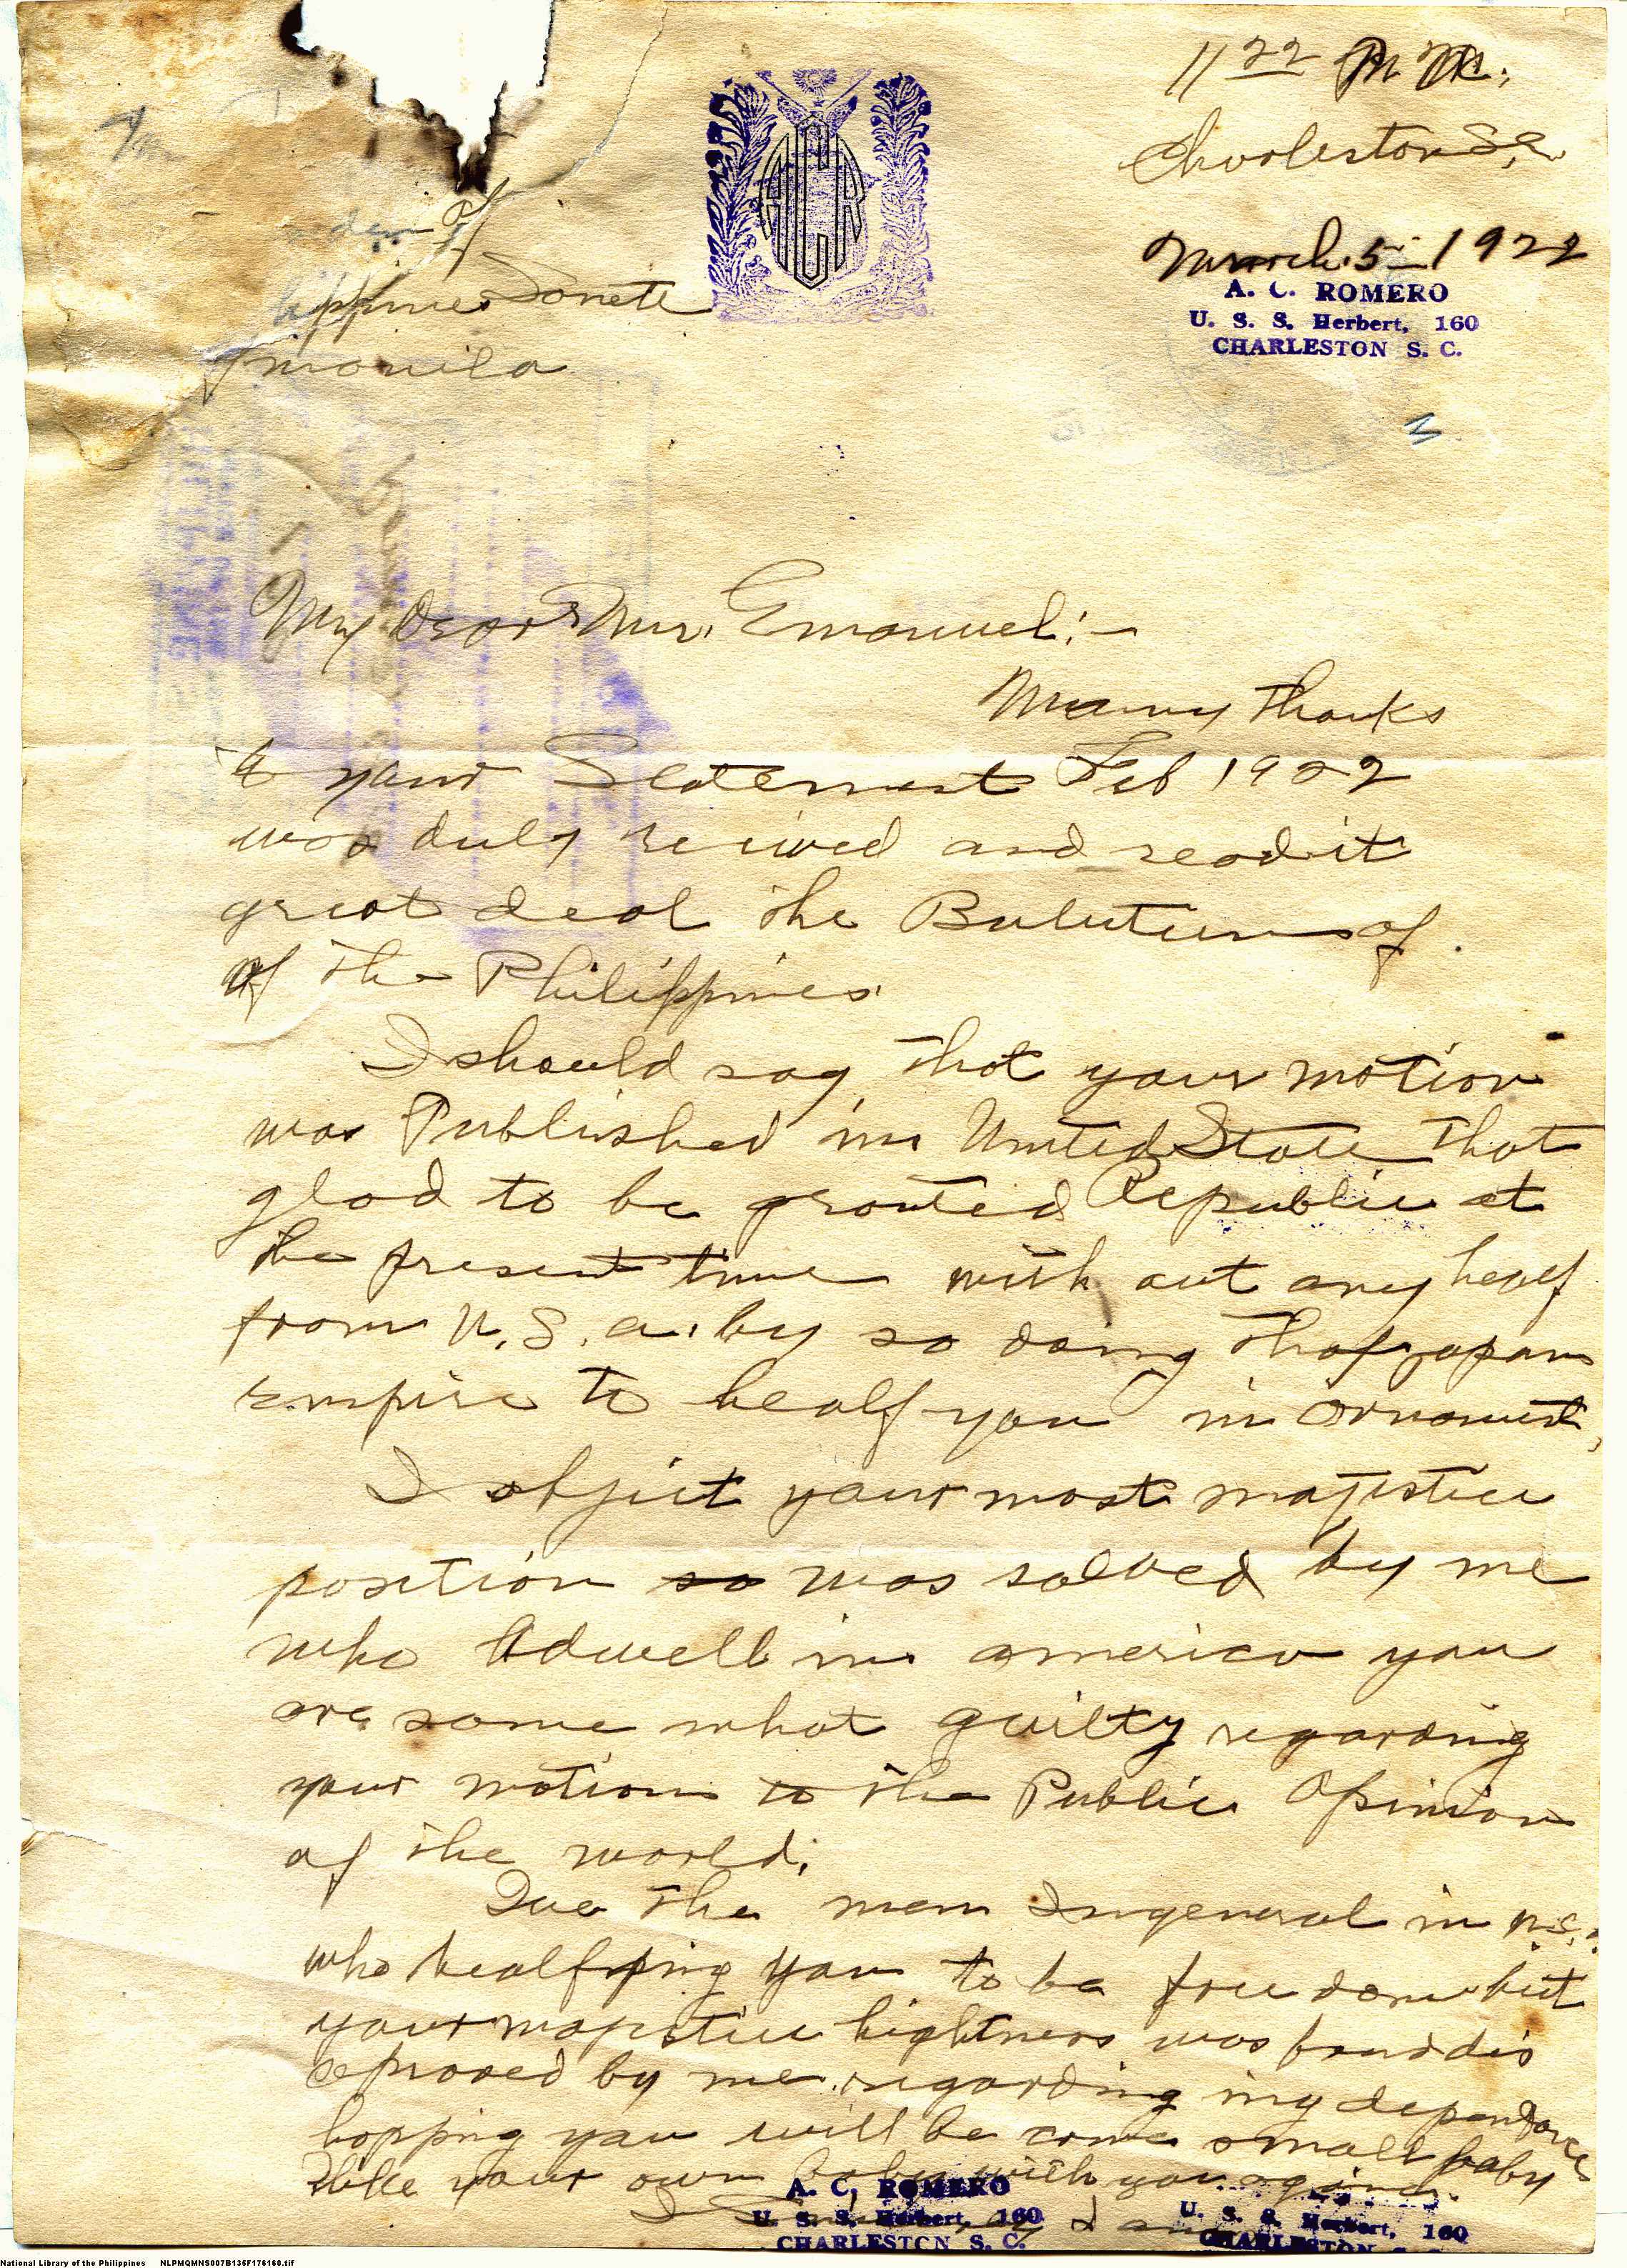 11 22 P.M.
Charleston S.C.
March 5- 1922
A. C. ROMERO
U. S. S. Herbert, 160
CHARLESTON S. C.
ACR
of
Sonete
manila
My Dear Mr. Emanuel:-
Many Thanks
to your Statement Feb 1922
was duly recived and read it
great deal the Buletin of
of the Philippines.
I should say that your motion
was Published in United State That
glad to be granted Republic at
the present time with out any healf
from U.S.a. by so doing That Japan
empire to healf you in ornament,
I objict your most majistic
position so was solved by me
who Adwell in america you
are some what guilty regarding
your motion to the Public Opinion
of the world.
Due the men Ingeneral in
who healfping you to be freedom but
your majistic hightness was found dis
aproved by me regarding my dependance
hopping you will be come small baby
like your own baby with you again.
A. C. ROMERO
U. S. S. Herbert, 160
CHARLESTON S. C.
U. S. S. Herbert, 160
CHARLESTON S. C.
National Library of the Philippines NLPMQMNS007B135F176160.tif